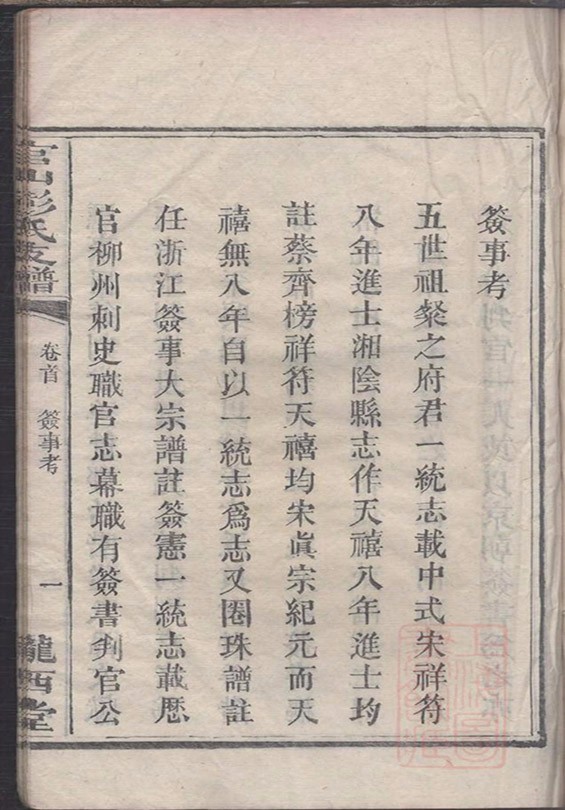 簽事考
五世祖粲之府君一統志載中式宋祥符
八年進士湘陰縣志作天禧八年進士均
註蔡齊榜祥符天禧均宋眞宗紀元而天
禧無八年自以一統志爲志又圈珠譜註
任浙江簽事大宗譜註簽憲一統志載歷
官柳州刺史職官志幕職有簽書判官公
彭氏支譜
卷首 簽事考
一
隴西堂